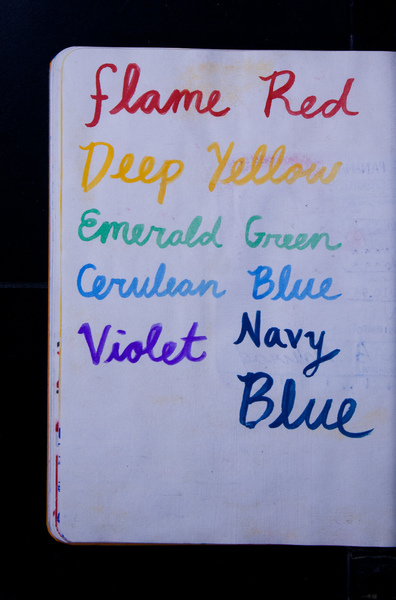 flame Red
Deep Yellow
Emerald Green
Cerulean Blue
Violet
Navy
Blue